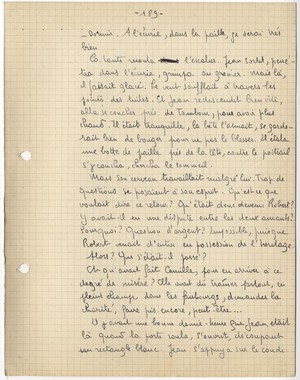 - 183 -
- dormir. A l'écurie, dans la paille, je serai très
bien
La tante monta l'escalier. Jean sortit, péné-
tra dans l'écurie, grimpa au grenier. Mais là,
il faisait glacé. Le vent soufflait à travers les
joints des tuiles. Et Jean redescendit bien vite,
alla se coucher près de Tambour, pour avoir plus
chaud. Il était tranquille, la bête l'aimait, se garde-
rait bien de bouger pour ne pas le blesser. Il étala
une botte de paille près de la bête, contre le poitrail
s'y coucha, chercha le sommeil.
Mais son cerveau travaillait malgré lui. Trop de
questions se posaient à son esprit. Qu'est-ce que
voulait dire ce retour? Qu'était donc devenu Robert?
Y avait-il eu une dispute entre les deux amants?
Pourquoi? Question d'argent? Impossible, puisque
Robert venait d'entrer en possession de l'héritage.
Alors? Que s'était-il passé?
Et qu'avait fait Camille, pour en arriver à ce
degré de misère? Elle avait dû traîner partout, en
pleins champs, dans les faubourgs, demander la
charité, faire pis encore, peut-être...
Il y avait une bonne demi-heure que Jean était
là quand la porte s'ouvrit, découpant
un rectangle blanc. Jean s'appuya sur le coude